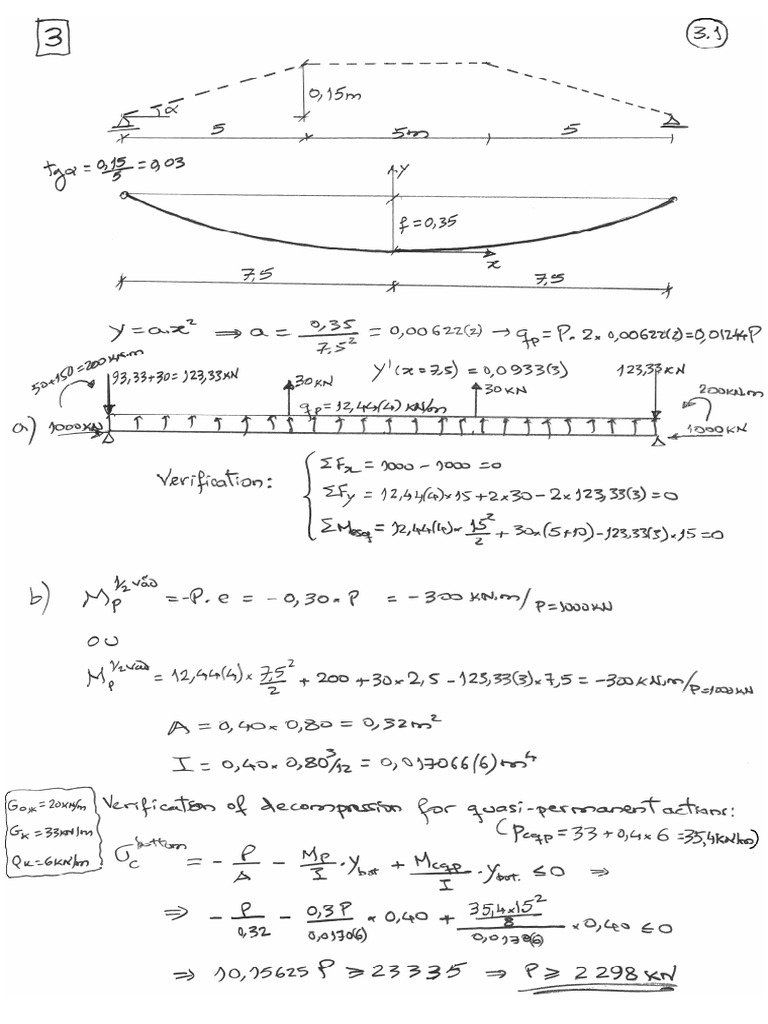 3
3.1
α
0,15m
5
5m
5
tgα = 0,15/5 = 0,03
y
f = 0,35
x
7,5
7,5
y = a.x² ⇒ a = 0,35/7,5² = 0,00622(2) → qp = P. 2 × 0,00622(2) = 0,01244P
50+150=200kN.m
93,33+30=123,33kN
30kN
y'(x=7,5) = 0,0933(3)
30kN
123,33kN
200kN.m
qp = 12,44(4) kN/m
a)
1000kN
1000kN
Verification:
ΣFx = 1000 - 1000 = 0
ΣFy = 12,44(4)×15 + 2×30 - 2×123,33(3) = 0
ΣMesq = 12,44(4)× 15²/2 + 30×(5+10) - 123,33(3)×15 = 0
b) Mp^1/2 vão = -P. e = - 0,30 × P = - 300 kN.m/P=1000kN
ou
Mp^1/2 vão = 12,44(4) × 7,5²/2 + 200 + 30×2,5 - 123,33(3)×7,5 = -300kN.m/P=1000kN
A = 0,40 × 0,80 = 0,32m²
I = 0,40 × 0,80³/12 = 0,017066(6) m⁴
G0,k = 20kN/m
Gk = 33kN/m
Qk = 6kN/m
Verification of decompression for quasi-permanent actions:
(Pcqp = 33 + 0,4×6 = 35,4kN/m)
σc^bottom = - P/A - Mp/I . ybot + Mcqp/I . ybot. ≤ 0 ⇒
⇒ - P/0,32 - 0,3P/0,0170(6) × 0,40 + (35,4×15²/8)/0,0170(6) × 0,40 ≤ 0
⇒ 10,15625 P ≥ 23335 ⇒ P ≥ 2298 kN